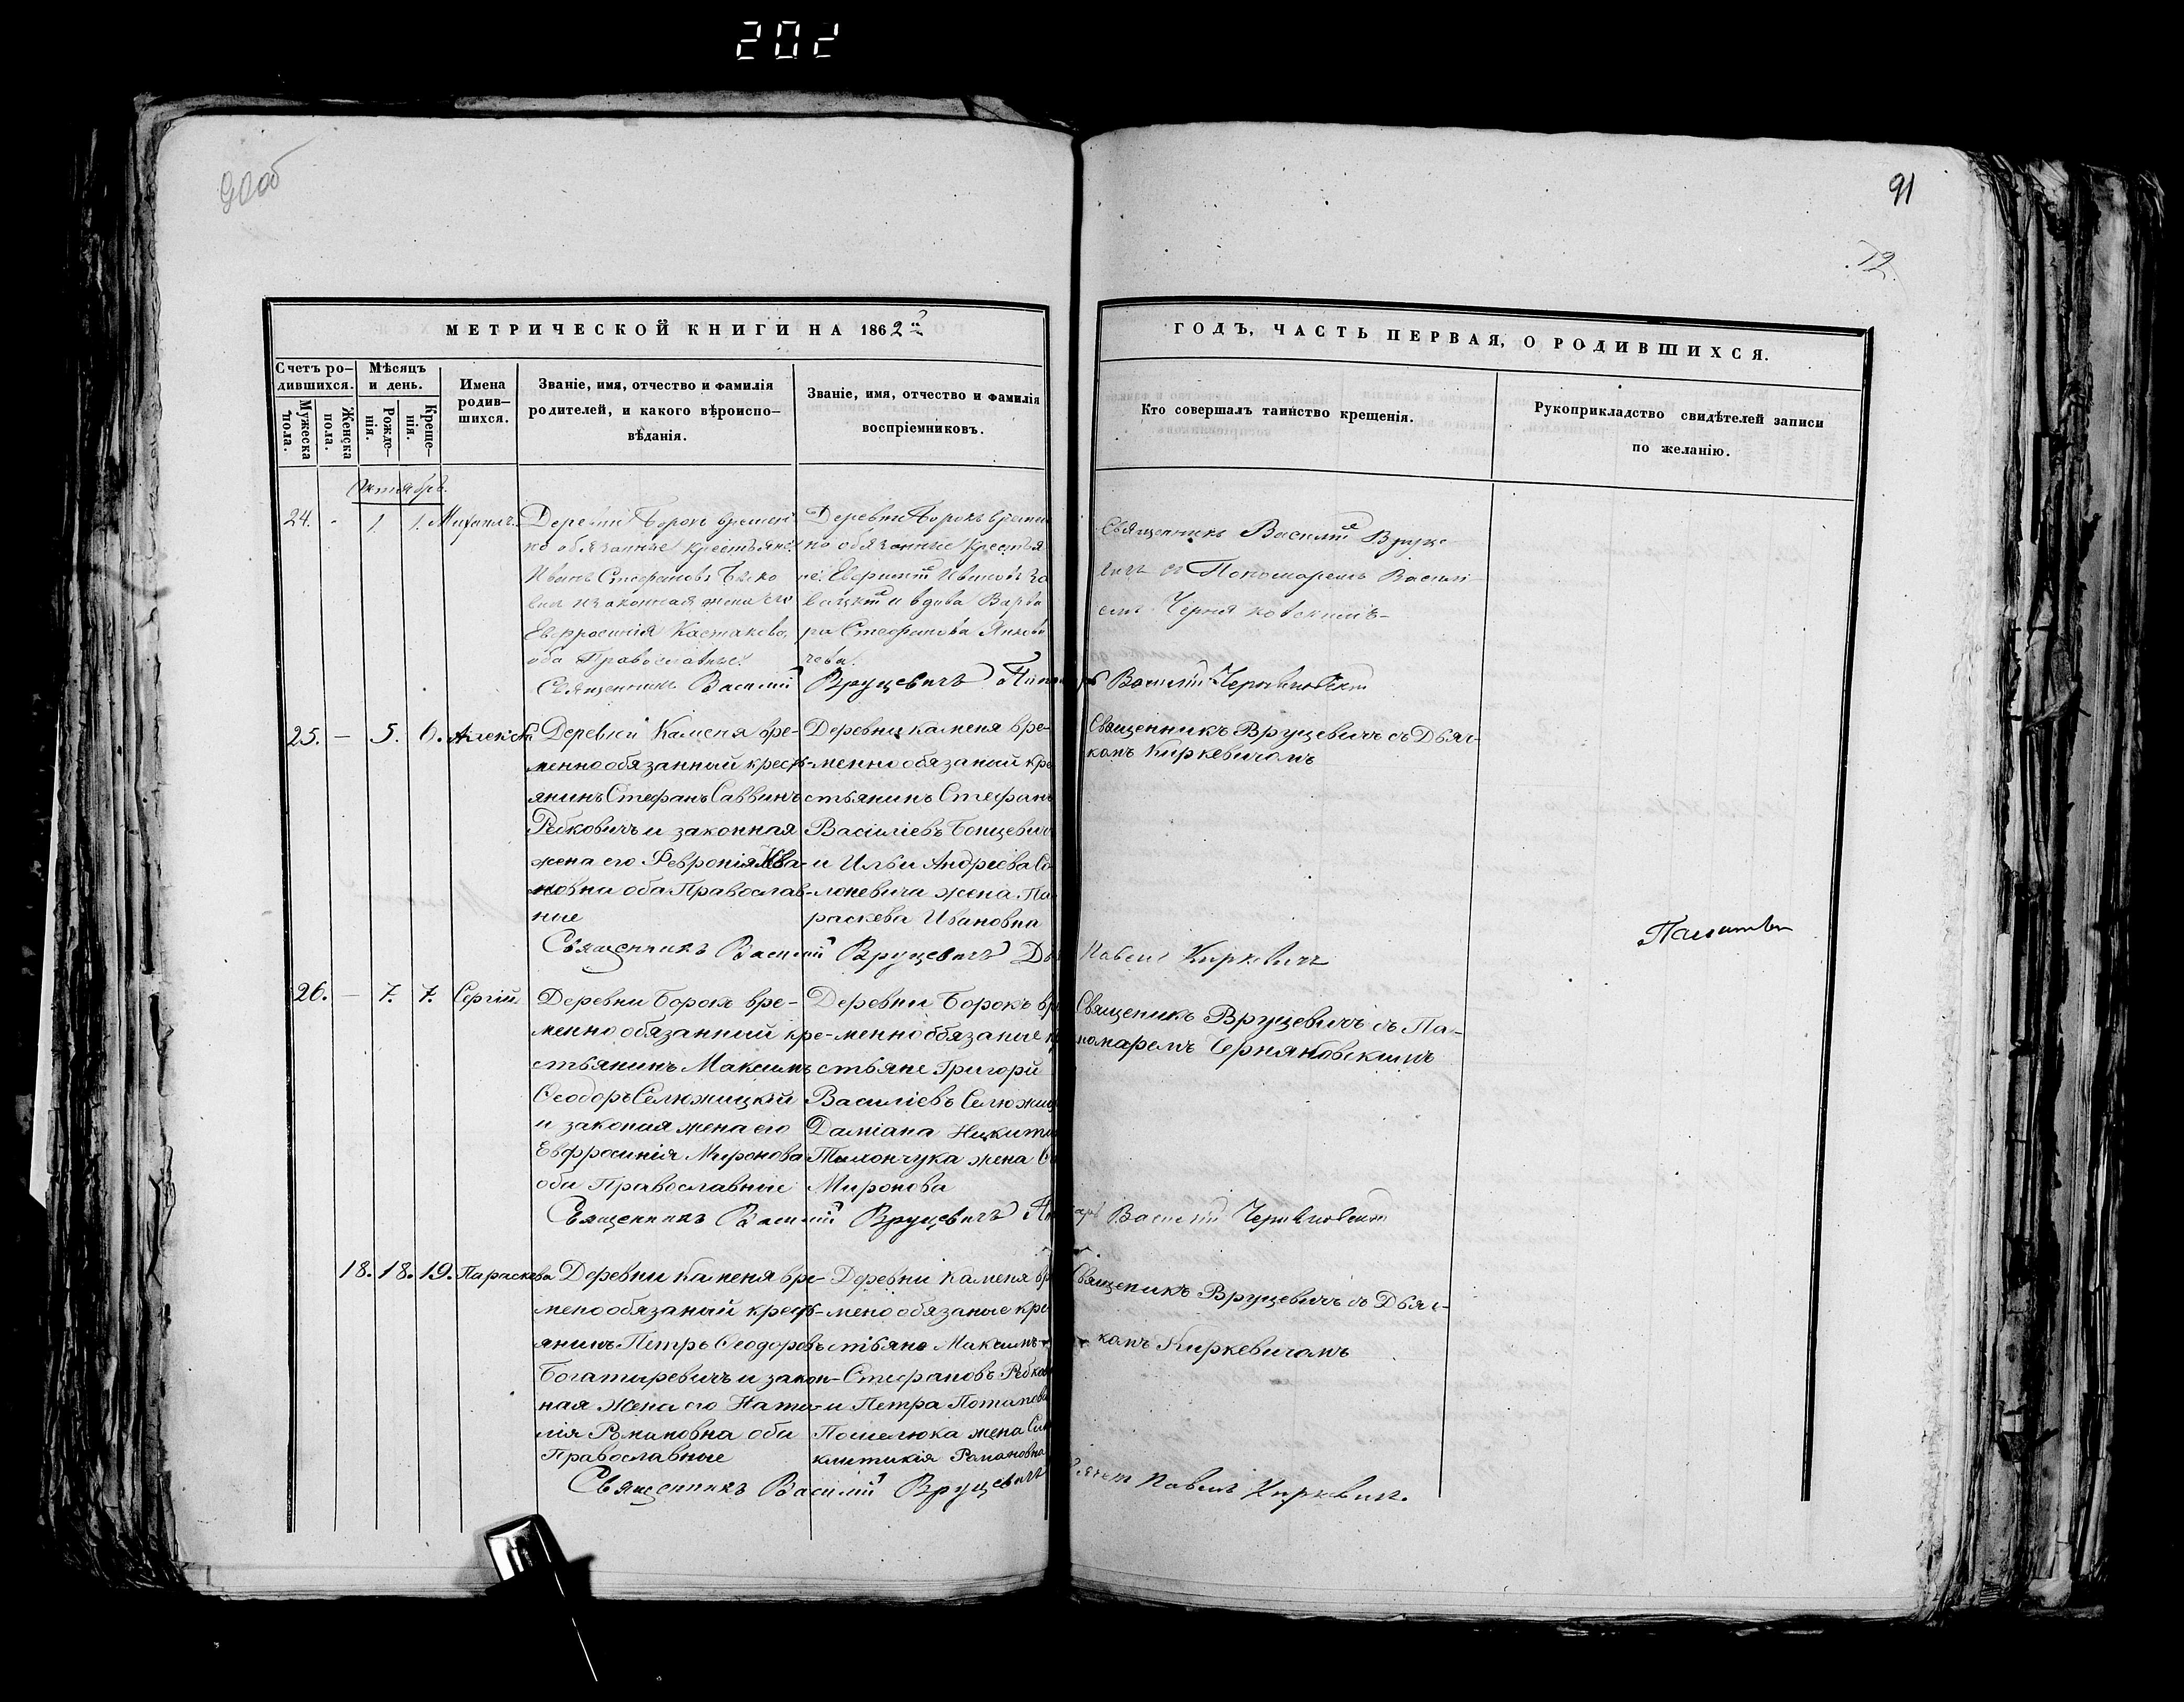 202
90об
91
72.
МЕТРИЧЕСКОЙ КНИГИ НА 1862й
ГОДЪ, ЧАСТЬ ПЕРВАЯ, О РОДИВШИХСЯ.
Счетъ ро–
дившихся.
Мужеска
пола.
Женска
пола.
Мѣсяцъ
и день.
Рожде–
нія.
Креще–
нія.
Имена
родив–
шихся.
Званіе, имя, отчество и фамилія
родителей, и какого вѣроиспо–
вѣданія.
Званіе, имя, отчество и фамилія
воспріемниковъ.
Кто совершалъ таинство крещенія.
Рукоприкладство свидѣтелей записи
по желанію.
Октябрь.
24. - 1. 1. Михаилъ.
Деревни Борокъ времен
но обязанные крестьяне
Иванъ Стефановъ
и законная жена его
Евфросинія
оба Православные.
Деревни Борокъ времен
но обязанные крестья
не: Ивановъ
и вдова Варва
ра Стефанова
чева.
Священникъ Василій Вруце
вичъ съ Пономаремъ Василі
емъ Черняковскимъ–
Священникъ Василій Вруцевичъ Василій Черняковскій
25. — 5. 6. Алексѣй
Деревни Каменя вре–
менно обязанный кресть–
янинъ Стефанъ Саввинъ
Рабковичъ и законная
жена его Феврония Ива–
новна оба Православ–
ные
Деревни Каменя вре–
менно обязаный кре
стьянинъ Стефанъ
Василіевъ
и Ильи Андреева Со
лоневича жена Па
раскева Ивановна
Священникъ Вруцевичъ съ Дьяч–
комъ Киркевичомъ
Священникъ Василій Вруцевичъ Павелъ Киркевичъ
26. — 7. 7. Сергій
Деревни Борокъ вре–
менно обязанный кре–
стьянинъ Максимъ
Ѳеодоръ Селюжицкій
и законая жена его
Евфросинія Миронова
оба Православные
Деревни Борокъ вре
менно обязаные
стьяне Григорій
Василіевъ Селюжиц
Даміана Никити
Тихончука жена
Миронова
Свящeникъ Вруцевичъ съ По–
номаремъ Черняковскимъ
Священникъ Василій Вруцевичъ Василій Черняковскій
18. 18. 19. Параскева
Деревни Каменя вре–
мено обязаный кресть–
янинъ Петръ Ѳеодоровъ
Богатыревичъ и закон–
ная жена его Ната–
лія Романовна оба
Православные
Деревни Каменя вре
мено обязаные кре
стьяне Максимъ–
Стефановъ Рабков
и Петра Потапова
Пошелюка жена Син
клитикія Романовна
Свящeникъ Вруцевичъ съ Дьяч–
комъ Киркевичомъ
Священникъ Василій Вруцевичъ Павелъ Киркевичъ.